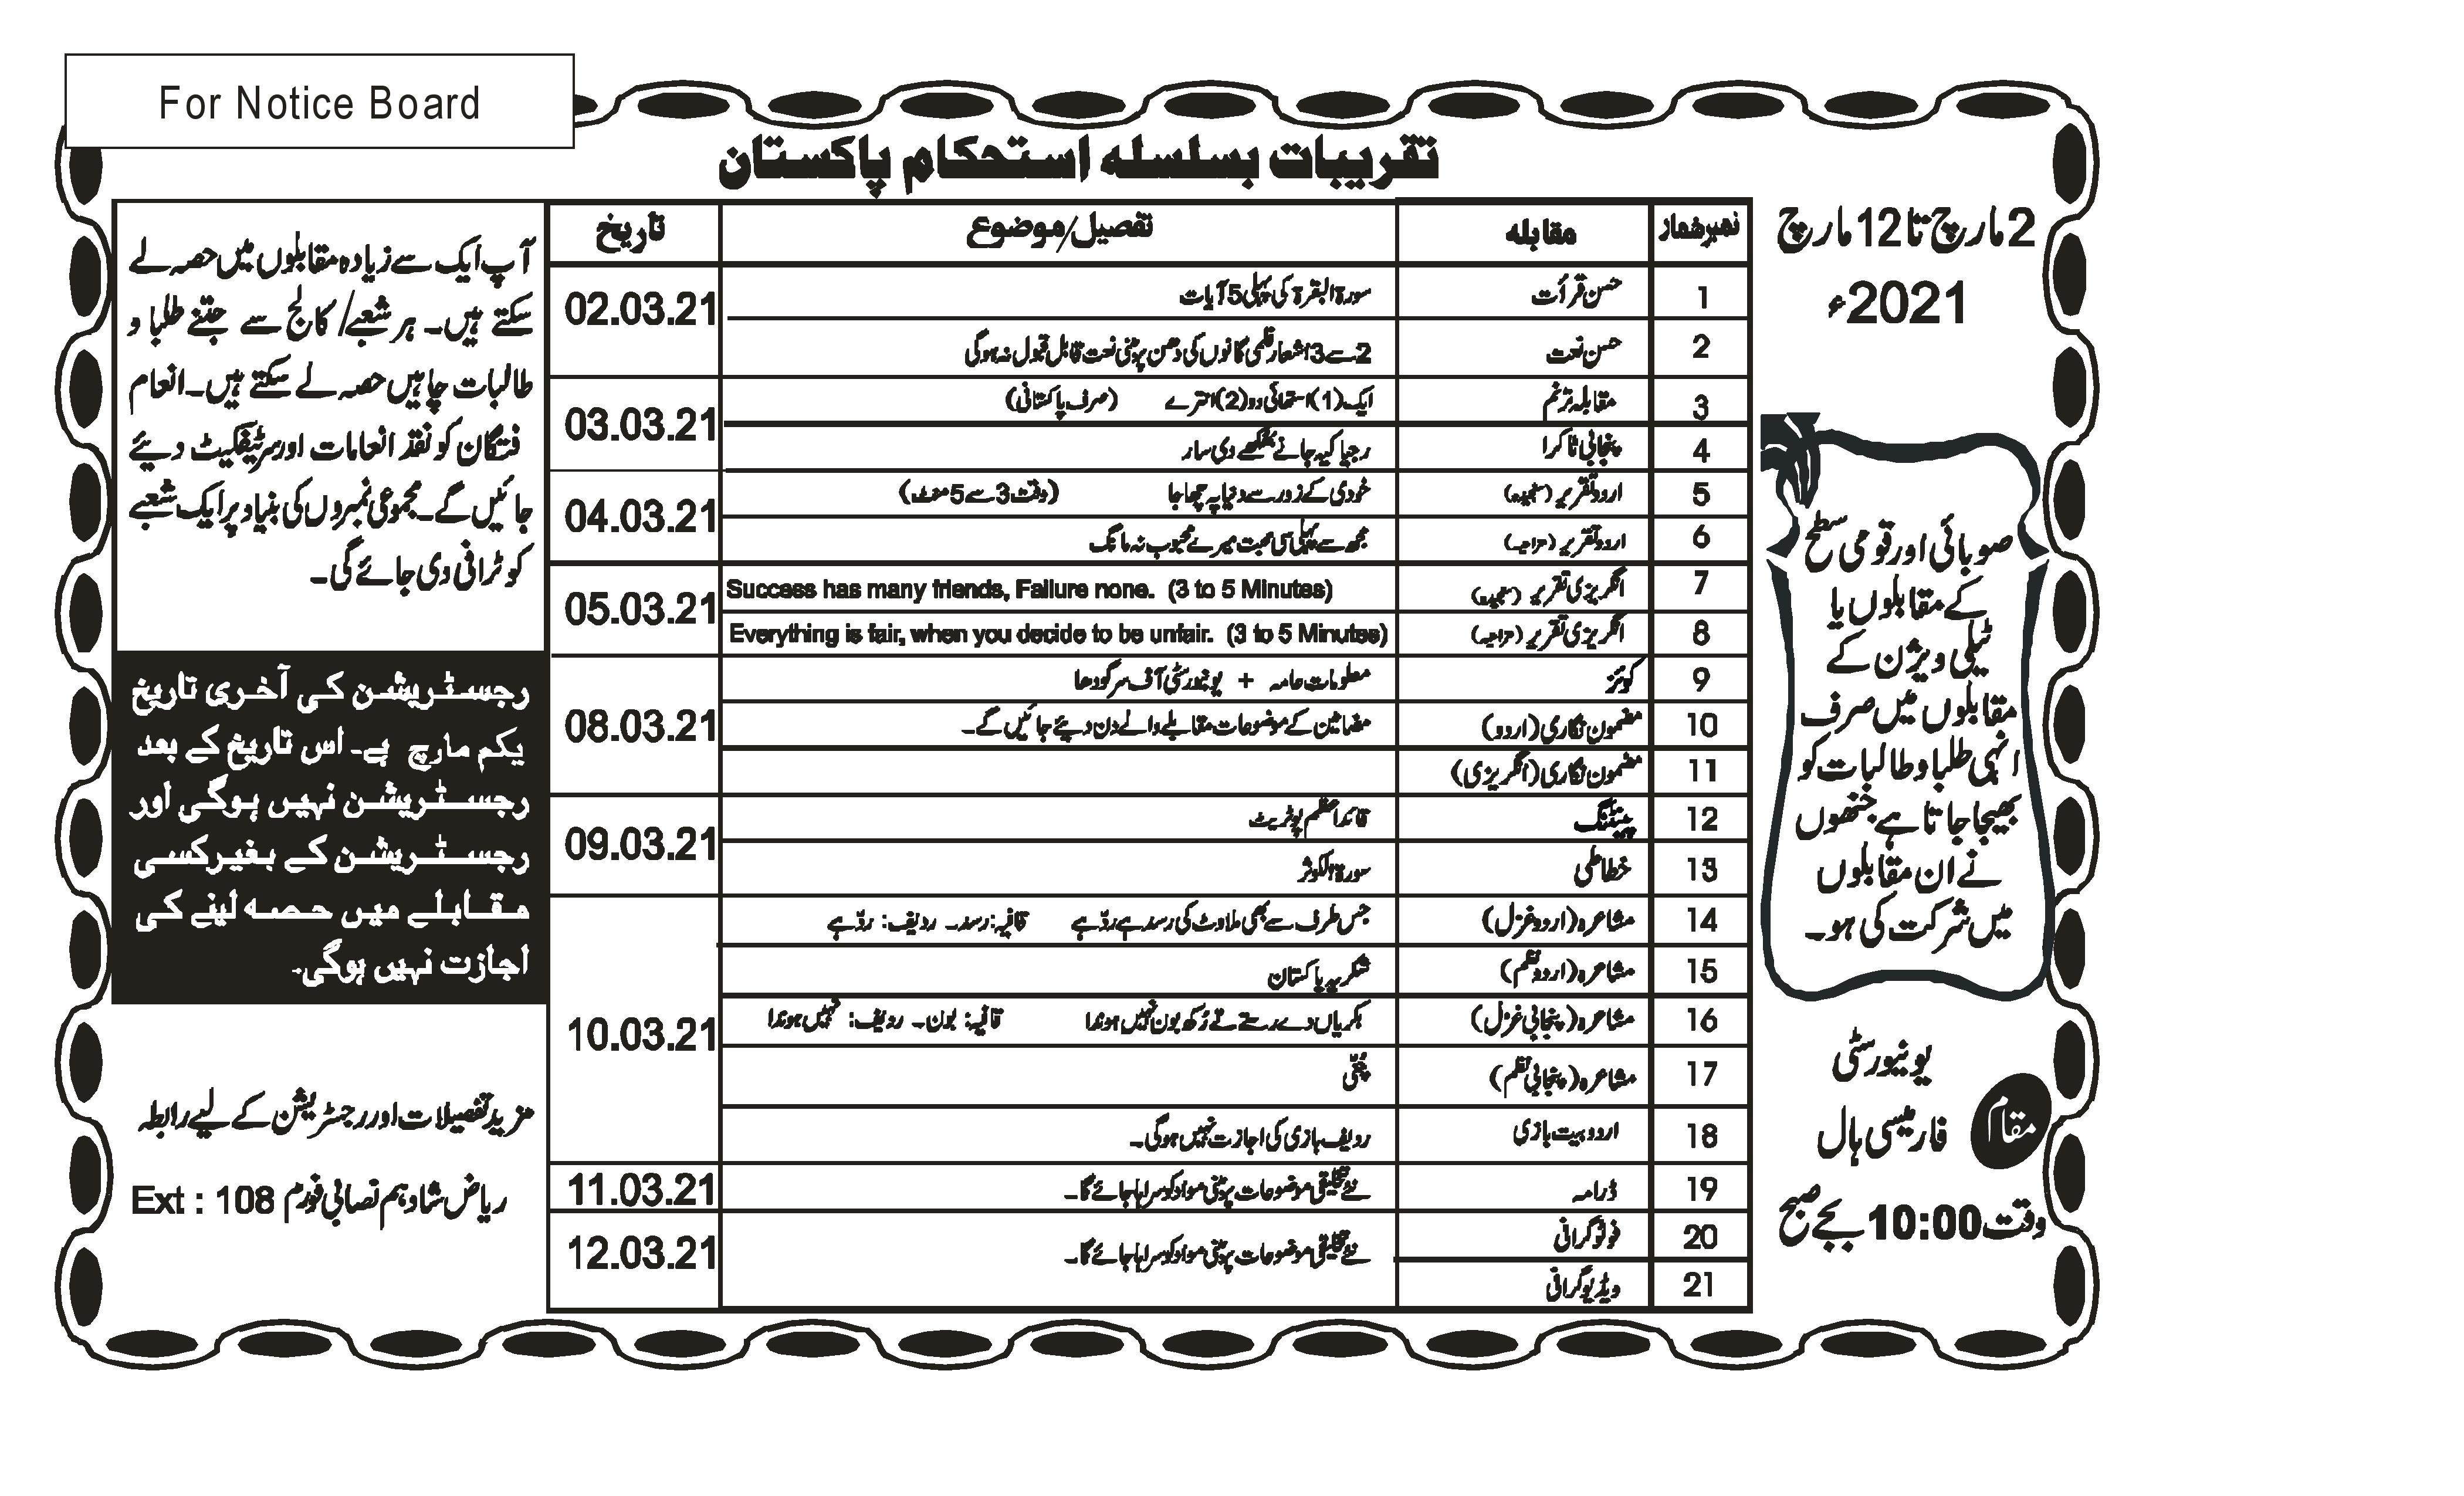 For Notice Board
تقریبات بسلسلہ استحکام پاکستان
2 مارچ تا 12 مارچ
2021ء
صوبائی اور قومی سطح
کے مقابلوں یا
ٹیلی ویژن کے
مقابلوں میں صرف
انہی طلبا و طالبات کو
بھیجا جاتا ہے جنھوں
نے ان مقابلوں
میں شرکت کی ہو۔
مقام
یونیورسٹی
فارمیسی ہال
وقت 10:00 بجے صبح
نمبر شمار مقابلہ تفصیل/موضوع تاریخ
1 حسن قرأت سورۃ البقرۃ کی پہلی 5 آیات 02.03.21
2 حسن نعت 2 سے 3 اشعار فلمی گانوں کی دھن پر مبنی نعت قابل قبول نہ ہوگی
3 مقابلہ ترنم ایک (1) استھائی دو (2) انترے (صرف پاکستانی) 03.03.21
4 پنجابی ٹاکرا رجیا کیہ جانے بُھکھے دی سار
5 اردو تقریر (سنجیدہ) خودی کے زور سے دنیا پہ چھا جا (وقت 3 سے 5 منٹ) 04.03.21
6 اردو تقریر (مزاحیہ) مجھ سے پہلی سی محبت میرے محبوب نہ مانگ
7 انگریزی تقریر (سنجیدہ) Success has many friends, Failure none. (3 to 5 Minutes) 05.03.21
8 انگریزی تقریر (مزاحیہ) Everything is fair, when you decide to be unfair. (3 to 5 Minutes)
9 کوئز معلومات عامہ + یونیورسٹی آف سرگودھا 08.03.21
10 مضمون نگاری (اردو) مضامین کے موضوعات مقابلے والے دن دیئے جائیں گے۔
11 مضمون نگاری (انگریزی)
12 پینٹنگ قائداعظم پوٹریٹ 09.03.21
13 خطاطی سورۃ الکوثر
14 مشاعرہ (اردو غزل) جس طرف سے بھی ملاوٹ کی رسد ہے ردّ ہے قافیہ: رسد۔ ردیف: ردّ ہے 10.03.21
15 مشاعرہ (اردو نظم) شکریہ پاکستان
16 مشاعرہ (پنجابی غزل) بکریاں دے رستے تے رُکھ بون نہیں ہوندا قافیہ: بون۔ ردیف: نہیں ہوندا
17 مشاعرہ (پنجابی نظم) چُنّی
18 اردو بیت بازی ردیف بازی کی اجازت نہیں ہوگی۔
19 ڈرامہ نئے تخلیقی موضوعات پر مبنی مواد کو سراہا جائے گا۔ 11.03.21
20 فوٹوگرافی نئے تخلیقی موضوعات پر مبنی مواد کو سراہا جائے گا۔ 12.03.21
21 ویڈیوگرافی
آپ ایک سے زیادہ مقابلوں میں حصہ لے
سکتے ہیں۔ ہر شعبے/ کالج سے جتنے طلبا و
طالبات چاہیں حصہ لے سکتے ہیں۔ انعام
فتگان کو نقد انعامات اور سرٹیفکیٹ دیئے
جائیں گے۔ مجموعی نمبروں کی بنیاد پر ایک شعبے
کو ٹرافی دی جائے گی۔
رجسٹریشن کی آخری تاریخ
یکم مارچ ہے۔ اس تاریخ کے بعد
رجسٹریشن نہیں ہوگی اور
رجسٹریشن کے بغیر کسی
مقابلے میں حصہ لینے کی
اجازت نہیں ہوگی۔
مزید تفصیلات اور رجسٹریشن کے لیے رابطہ
ریاض شاد ہم نصابی فورم Ext : 108